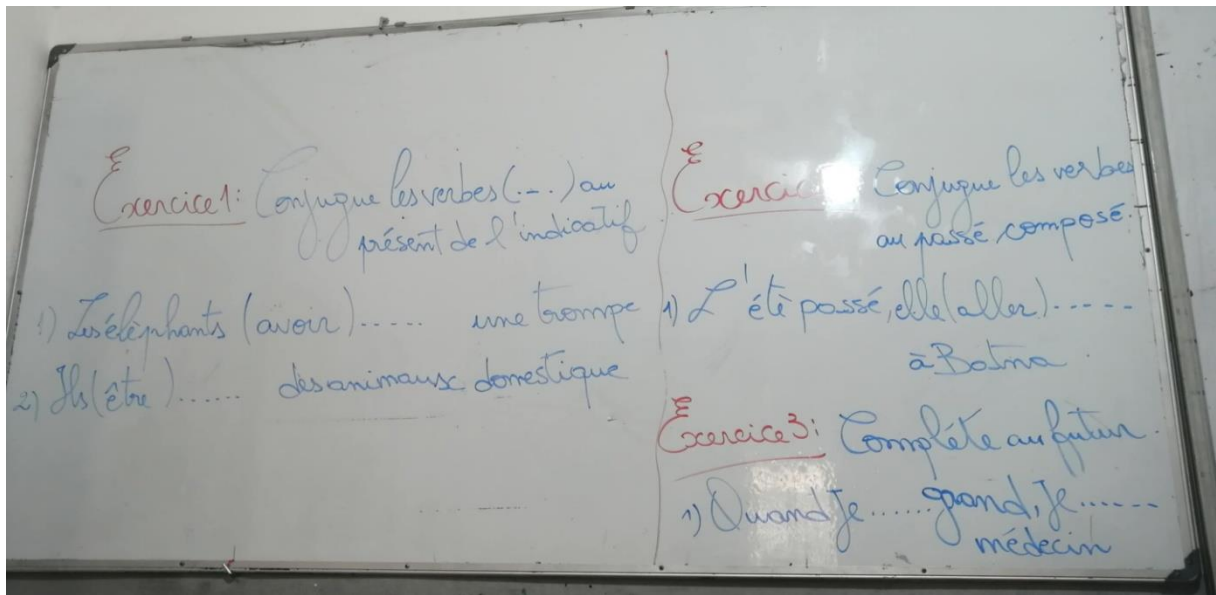 Exercice 1: Conjugue les verbes (...) au
présent de l'indicatif
1) Les éléphants (avoir)..... une trompe
2) Ils (être)...... des animaux domestique
Conjugue les verbes
au passé composé.
1) L'été passé, elle (aller)......
à Batna
Exercice 3: Compléte au futur.
1) Quand Je......grand, Je......
médecin